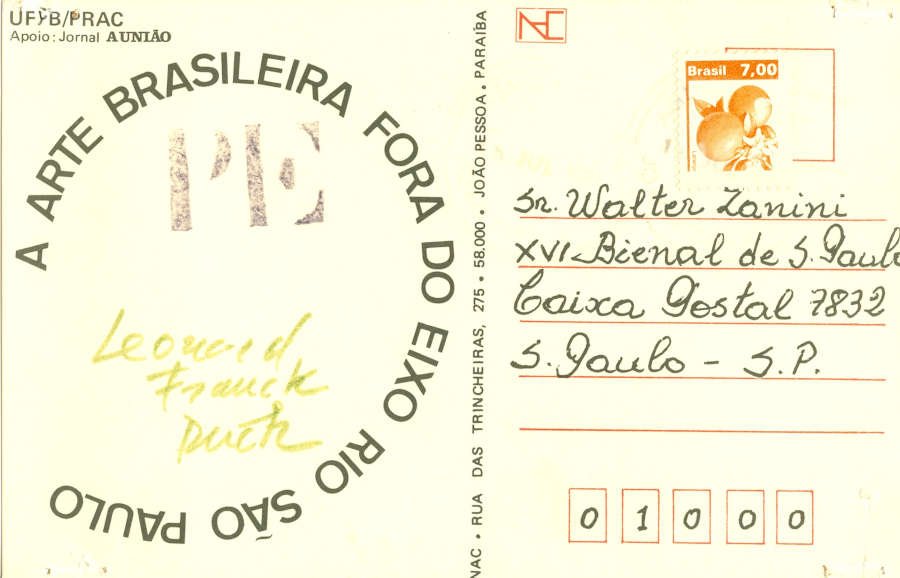 UFPB/PRAC
Apoio: Jornal A UNIÃO
A ARTE BRASILEIRA FORA DO EIXO RIO SÃO PAULO
PE
Leonard
Franck
Duch
NAC • RUA DAS TRINCHEIRAS, 275 • 58.000 • JOÃO PESSOA • PARAÍBA
NAC
Brasil 7,00
Sr. Walter Zanini
XVI Bienal de S. Paulo
Caixa Postal 7832
S. Paulo - S.P.
0 1 0 0 0